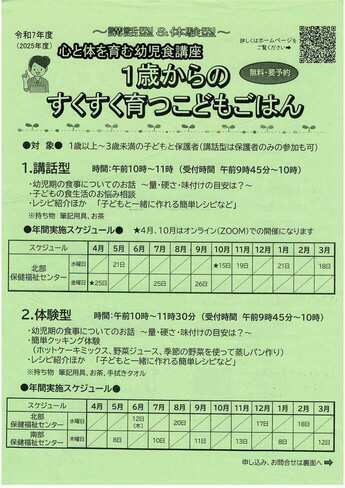 令和7年度
(2025年度)
～講話型 & 体験型～
詳しくはホームページを
ご覧ください
心と体を育む幼児食講座
無料・要予約
1歳からの
すくすく育つこどもごはん
●対 象● 1歳以上～3歳未満の子どもと保護者(講話型は保護者のみの参加も可)
1.講話型 時間:午前10時～11時 (受付時間 午前9時45分～10時)
・幼児期の食事についてのお話 ～量・硬さ・味付けの目安は?～
・子どもの食生活のお悩み相談
・レシピ紹介ほか 「子どもと一緒に作れる簡単レシピなど」
※持ち物 筆記用具、お茶
●年間実施スケジュール● ★4月、10月はオンライン(ZOOM)での開催になります
スケジュール 4月 5月 6月 7月 8月 9月 10月 11月 12月 1月 2月 3月
北部
保健福祉センター
水曜日 21日 ★15日 19日 21日 18日
金曜日 ★25日 25日 26日
2.体験型 時間:午前10時～11時30分 (受付時間 午前9時45分～10時)
・幼児期の食事についてのお話 ～量・硬さ・味付けの目安は?～
・簡単クッキング体験
(ホットケーキミックス、野菜ジュース、季節の野菜を使って蒸しパン作り)
・レシピ紹介ほか 「子どもと一緒に作れる簡単レシピなど」
※持ち物 筆記用具、お茶、手拭きタオル
●年間実施スケジュール●
スケジュール 4月 5月 6月 7月 8月 9月 10月 11月 12月 1月 2月 3月
北部
保健福祉センター
水曜日 12日(木) 20日 17日 18日
南部
保健福祉センター
木曜日 8日 10日 11日 13日 8日 12日
➡申し込み、お問合せは裏面へ